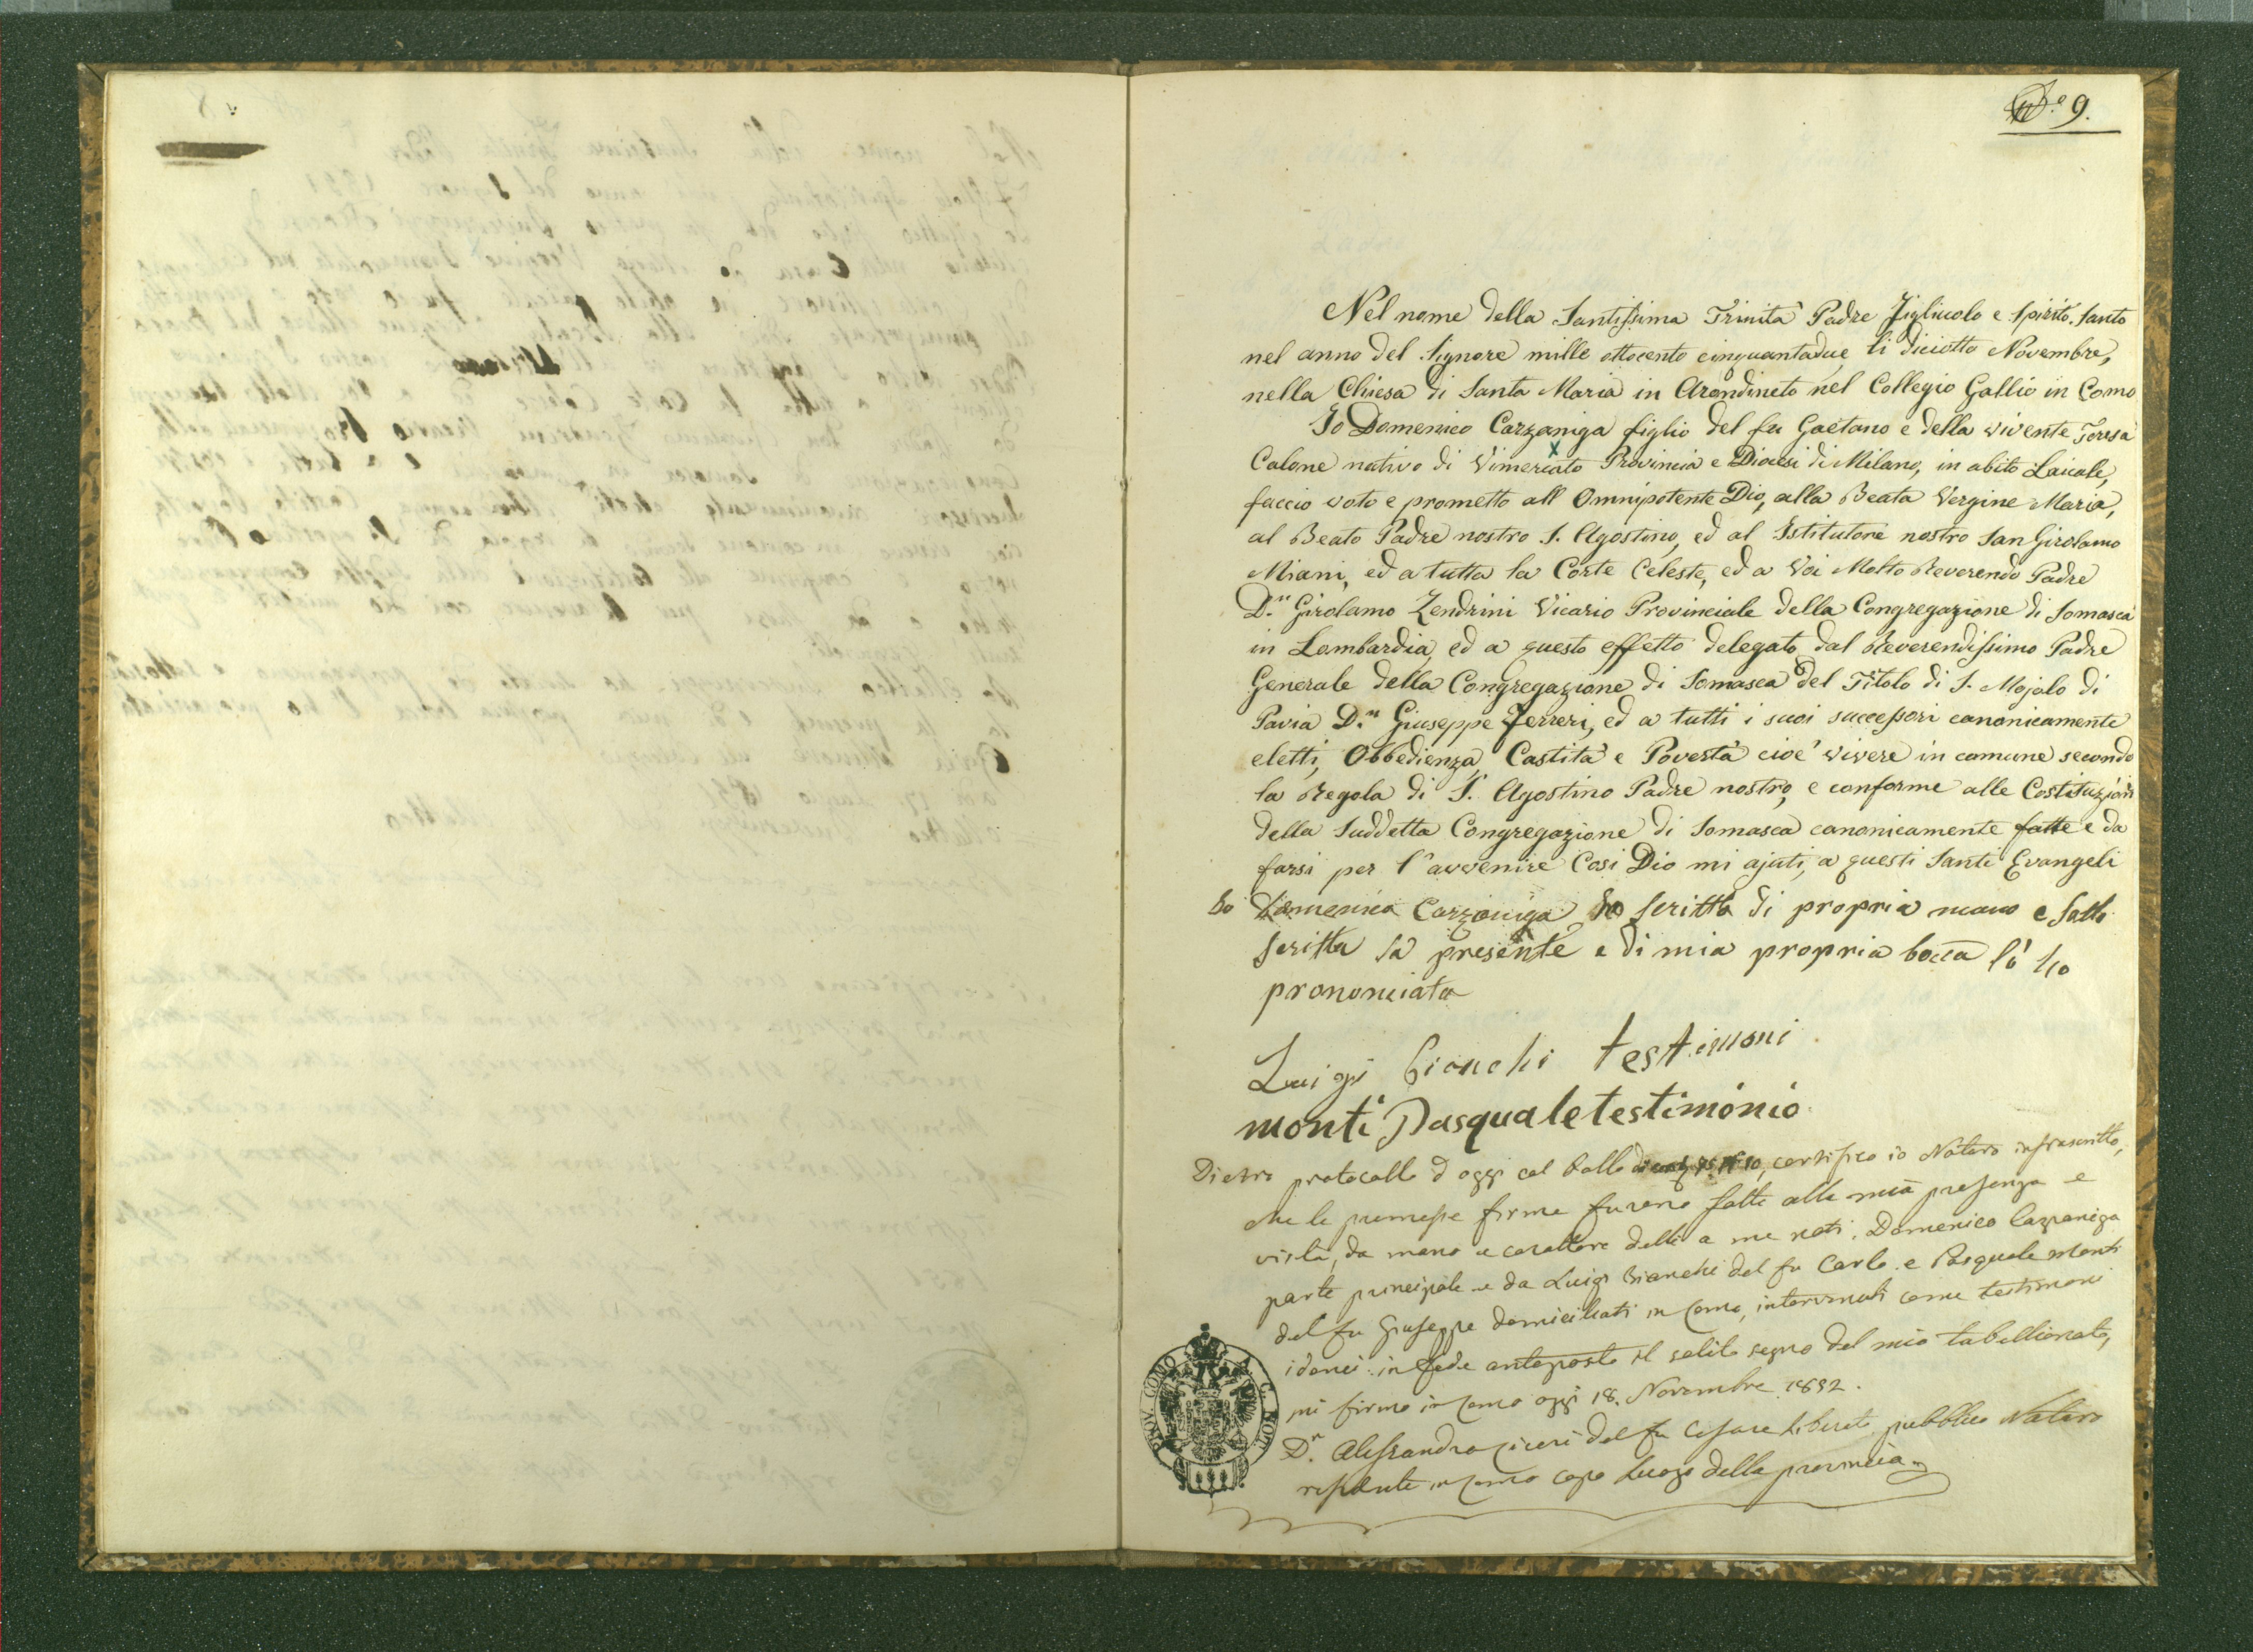 N.o 9.
Nel nome della Santissima Trinità Padre Figliuolo e Spirito Santo
nel anno del Signore mille ottocento cinquantadue, li diciotto Novembre,
nella Chiesa di Santa Maria in Arondineto nel Collegio Gallio in Como
Io Domenico Cazzaniga figlio del fu Gaetano e della vivente Teresa
Calone nativo di Vimercato Provincia e Diocesi di Milano, in abito Laicale,
faccio voto e prometto all Omnipotente Dio, alla Beata Vergine Maria,
al Beato Padre nostro S. Agostino, ed al Istitutore nostro San Girolamo
Miani, ed a tutta la Corte Celeste, ed a Voi Molto Reverendo Padre
D.n Girolamo Zendrini Vicario Provinciale della Congregazione di Somasca
in Lombardia, ed a questo effetto delegato dal Reverendissimo Padre
Generale della Congregazione di Somasca del Titolo di S. Mojolo di
Pavia D.n Giuseppe Ferreri, ed a tutti i suoi successori canonicamente
eletti, Obbedienza, Castità e Povertà cioè vivere in comune secondo
la Regola di S. Agostino Padre nostro, e conforme alle Costituzioni
della Suddetta Congregazione di Somasca canonicamente fatte e da
farsi per l'avvenire Cosi Dio mi ajuti, a questi Santi Evangeli
Io Domenico Cazzaniga ho scritta di propria mano e Sotto
scritta la presente e di mia propria bocca l'ò ho
prononciata
Luigi Bianchi testimoni
monti Pasquale testimonio
Dietro protocollo d oggi col bollo certifico io Notaro infrascritto,
che le premesse firme furono fatte alla mia presenza e
vista, da mano e carattere delli a me noti, Domenico Cazzaniga
parte principale e da Luigi Bianchi del fu Carlo e Pasquale Monti
del fu Giuseppe domiciliati in Como, intervenuti come testimoni
idonei: in fede anteposto il solito segno del mio tabellionato,
mi firmo in Como oggi 18. Novembre 1852.
D.r Alessandro del fu Cesare pubblico Notaro
residente in Como capo Luogo della provincia
PROV. COMO